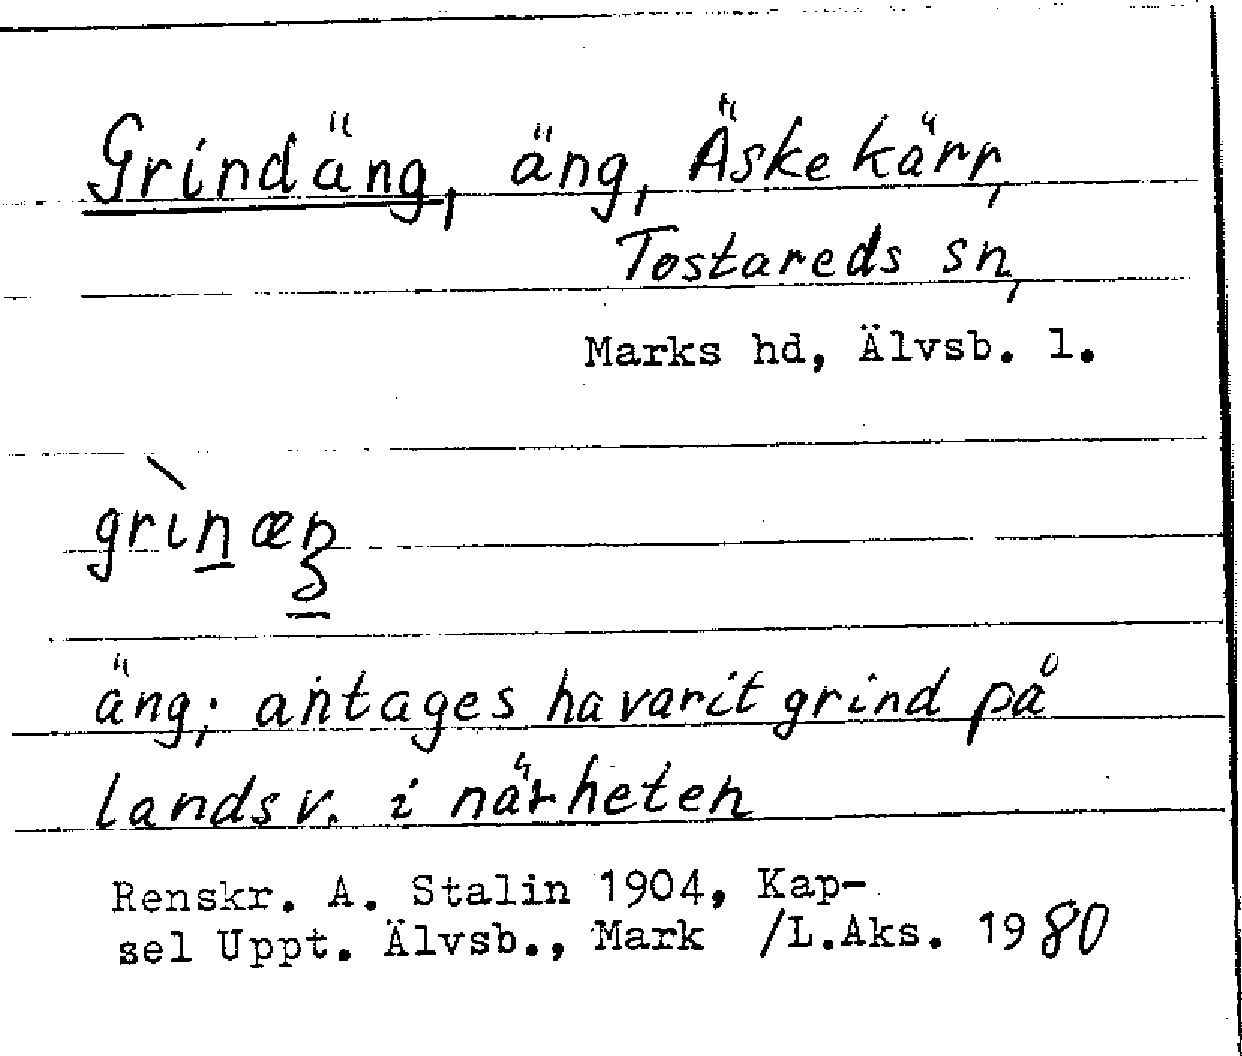 Grindäng, äng, Äskekärr,
Tostareds sn,
Marks hd, Älvsb. l.
grìnæŋ
äng; antages ha varit grind på
landsv. i närheten
Renskr. A. Stalin 1904, Kap-
sel Uppt. Älvsb., Mark /L.Aks. 1980